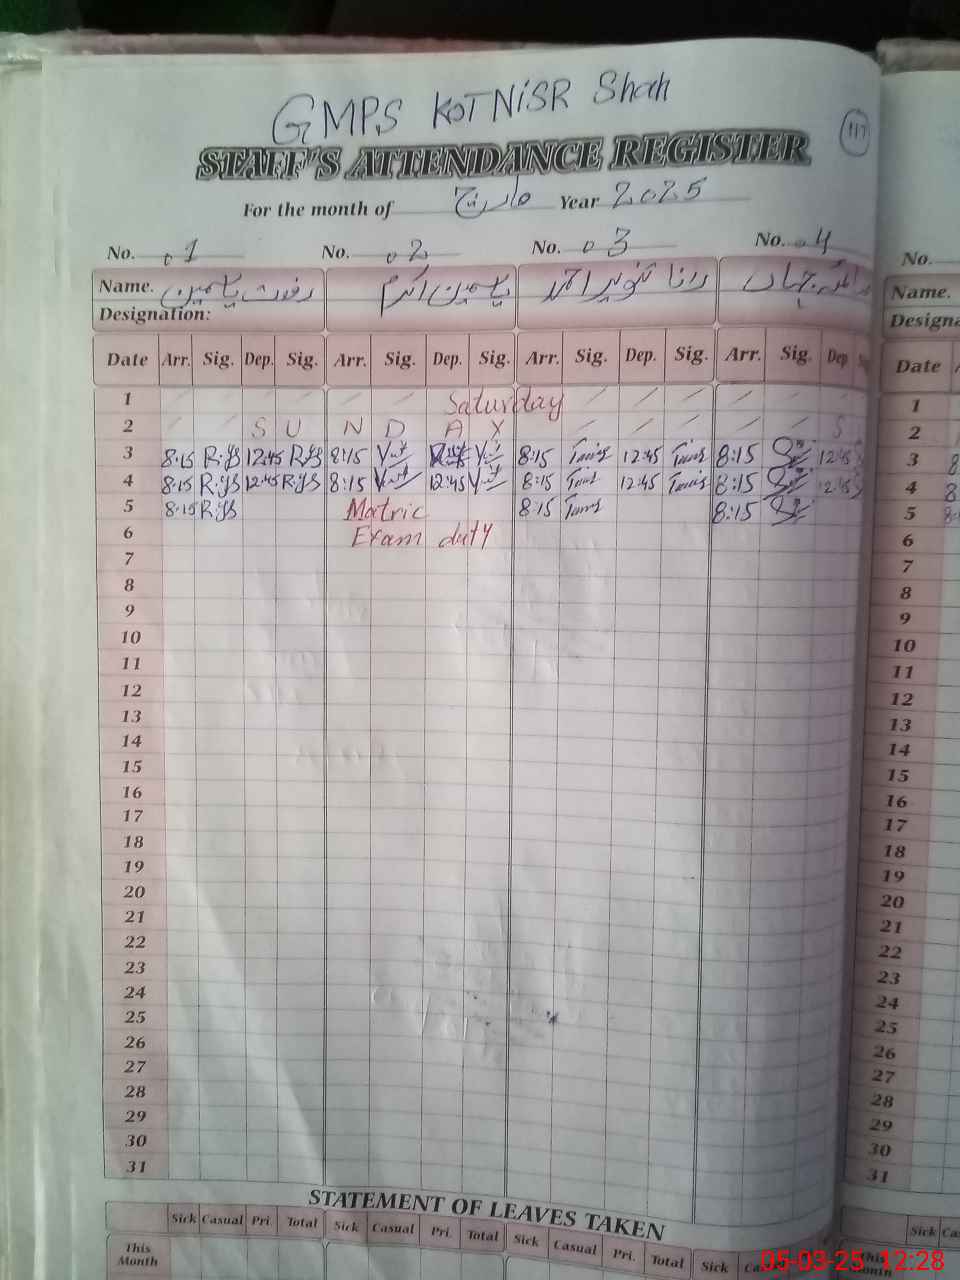 GMPS KOT NiSR Shah
117
STAFF'S ATTENDANCE REGISTER
For the month of مارچ Year 2025
No. 01 No. 02 No. 03 No. 04 No.
Name. رفعت یاسمین یاسمین اکرم رانا تنویر احمد جہاں Name.
Designation: Designa
Date Arr. Sig. Dep. Sig. Arr. Sig. Dep. Sig. Arr. Sig. Dep. Sig. Arr. Sig. Dep Date
1 Saturday 1
2 S U N D A Y S 2
3 8:15 12:45 8:15 8:15 12:45 8:15 12:45 3 8
4 8:15 12:45 8:15 12:45 8:15 12:45 8:15 12:45 4 8
5 8:15 Matric 8:15 8:15 5 8
6 Exam duty 6
7 7
8 8
9 9
10 10
11 11
12 12
13 13
14 14
15 15
16 16
17 17
18 18
19 19
20 20
21 21
22 22
23 23
24 24
25 25
26 26
27 27
28 28
29 29
30 30
31 31
STATEMENT OF LEAVES TAKEN
Sick Casual Pri. Total Sick Casual Pri. Total Sick Casual Pri. Total Sick Cas Sick Ca
This Month This Month
05-03-25 12:28